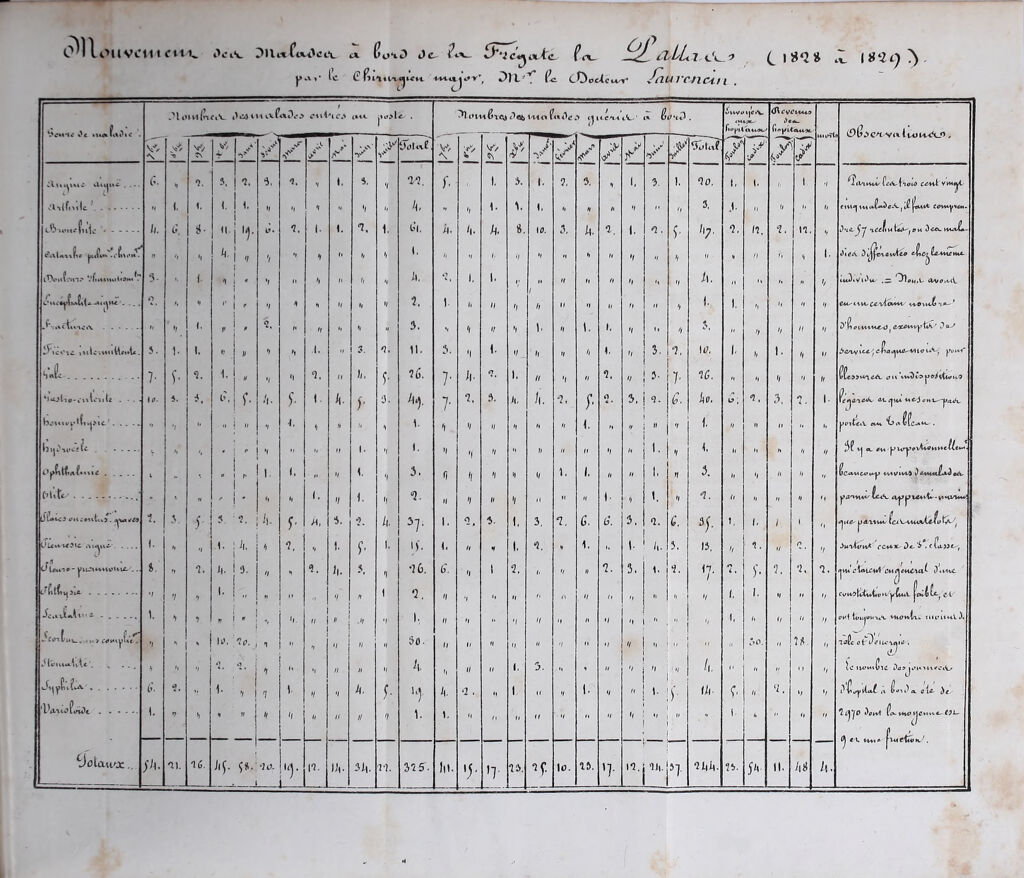 Mouvement des Malades à bord de la Frégate la Pallas, (1828 à 1829.)
par le Chirurgien major, Mr. le Docteur Laurencin.
Genre de maladie. Nombres des malades entrés au poste. Nombres des malades guéris à bord. Envoyés aux hôpitaux Revenus des hôpitaux morts Observations.
7bre 8bre 9bre Xbre Total 7bre 8bre 9bre Xbre février mars avril Mai Juin Juillet Total Toulon Cadix Toulon Cadix
Angine aiguë 6. " 2. 3. 2. 3. 2. " 1. 3. " 22. 5. " 1. 3. 1. 2. 3. " 1. 3. 1. 20. 1. 1. " 1 " Parmi les trois cent vingt
Arthrite " 1. 1. 1. 1. " " " " " " 4. " " 1. 1. 1. " " " " " " 3. 1. " " " " cinq malades, il faut compren-
Bronchite 4. 6. 8. 11. 19. 6. 2. 1. 1. 2. 1. 61. 4. 4. 4. 8. 10. 3. 4. 2. 1. 2. 5. 47. 2. 12. 2. 12. " dre 57 rechutes, ou des mala-
Catarrhe pulm. chron. 1. 1. dies différentes chez le même
Douleurs rhumatism. 3. " 1. 4. 2. 1. 1. 4. individu. = Nous avons
Encéphalite aiguë 2. 2. 1. 1. 1. 1. eu un certain nombre
Fractures " " 1. " 2. 3. 1. 1. 1. 3. d'hommes, exempts de
Fièvre intermittente 3. 1. 1. " " " " 1. " 3. 2. 11. 3. " 1. " " " " 1. " 3. 2. 10. 1. " 1. " " service, chaque mois, pour
Gale 7. 5. 2. 1. " " " 2. " 4. 5. 26. 7. 4. 2. 1. " " " 2. " 3. 7. 26. " " " " " blessures ou indispositions
Gastro-entérite 10. 3. 3. 6. 5. 4. 5. 1. 4. 5. 3. 49. 7. 2. 3. 4. 4. 2. 5. 2. 3. 2. 6. 40. 6. 2. 3. 2. 1. légères et qui ne sont pas
Hémopthysie 1. 1. 1. 1. portés au Tableau.
Hydrocèle 1. 1. 1. 1. Il y a eu proportionnellemt.
Ophthalmie 1. 1. 1. 3. 1. 1. 1. 3. beaucoup moins de malades
Otite 1. 1. 2. 1. 1. 2. parmi les apprentis-marins
Plaies ou contus. graves 2. 3. 5. 3. 2. 4. 5. 4. 3. 2. 4. 37. 1. 2. 3. 1. 3. 2. 6. 6. 3. 2. 6. 35. 1. 1. 1 1 " que parmi les matelots,
Pleurésie aiguë 1. " " 1. 4. " 2. " 1. 5. 1. 15. " " " 1. 2. " 1. " 1. 4. 3. 13. " 2. " 2. " surtout ceux de 3e. classe,
Pleuro-pneumonie 8. " 2. 4. 3. " " 2. 4. 3. " 26. 6. " 1 2. " " " 2. 3. 1. 2. 17. 2. 5. 2. 2. 2. qui étaient en général d'une
Phthysie 1. 1 2. 1. 1. constitution plus faible, et
Scarlatine 1. 1. 1. ont toujours montré moins de
Scorbut sans compliq. " " " 10. 20. 30. 30. 28. zèle et d'énergie.
Stomatite " " " 2. 2. 4. 1. 3. 4. Le nombre des journées
Syphilis 6. 2. " 1. " " 1. " " 4. 5. 19. 4. 2. " 1. " " 1. " " 1. 5. 14. 5. " 2. " " d'hôpital à bord a été de
Varioloïde 1. 1. 1. 1. 2970 dont la moyenne est
9 et une fraction.
Totaux 54. 21. 26. 45. 58. 20. 19. 12. 14. 34. 22. 325. 41. 15. 17. 23. 25. 10. 23. 17. 12. 24. 37. 244. 23. 54. 11. 48 4.